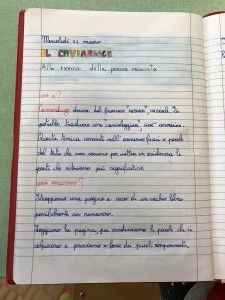 Mercoledì 22 marzo
IL CAVIARDAGE
Alla ricerca della poesia nascosta
COS'È?
Caviardage deriva dal francese "caviar", caviale. Si
potrebbe tradurre con cioè annerire.
Questa tecnica consiste nell'annerire frasi e parole
del testo che non servono per mettere in evidenza le
parti che riteniamo più significative.
COME PROCEDIAMO?
Strappiamo una pagina a caso di un vecchio libro
possibilmente un romanzo.
Leggiamo la pagina, poi evidenziamo le parole che ci
colpiscono e proviamo a fare dei piccoli componimenti.